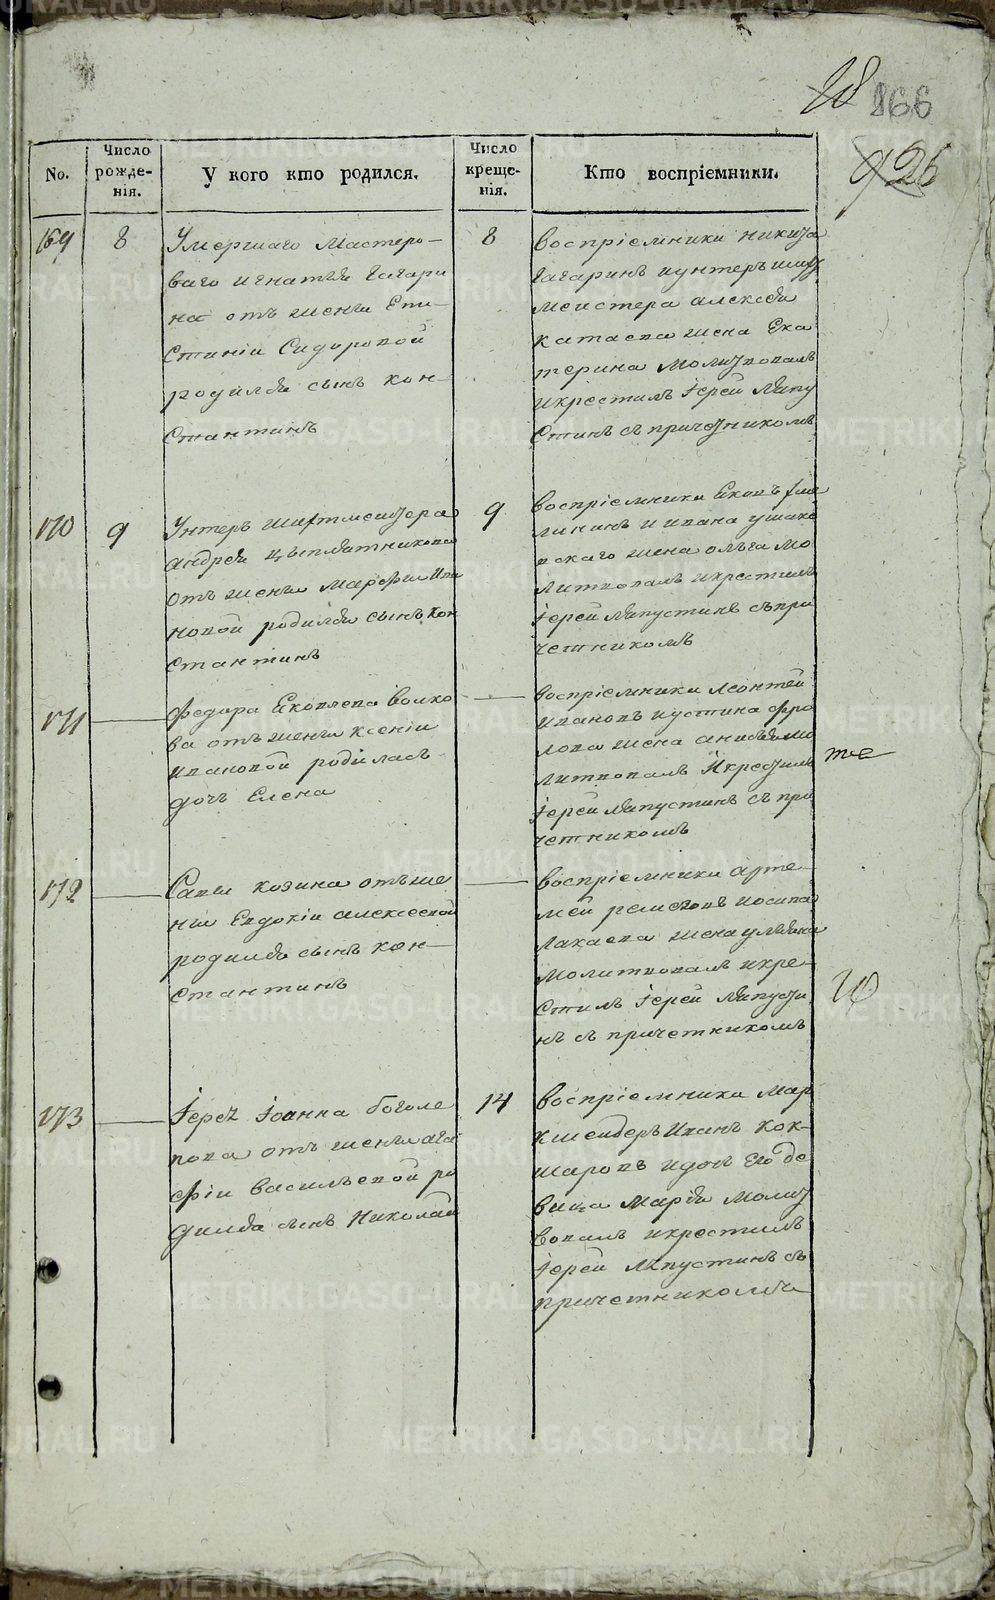 166
926
No.
Число рожденія.
У кого кто родился.
Число крещенія.
Кто воспріемники.
169
8
Умершаго Мастеро-
ваго игнатія Гагари
на отъ жены Епи-
стиніи Сидоровой
родился сынъ кон-
стантинъ
8
воспріемники никита
Гагаринъ иунтеръ ших
мейстера алексея
катаева жена Ека
терина молитвовалъ
икрестилъ Іерей Лапу
стинъ съ причетникомъ
170
9
Унтеръ шихтмейстера
андрея цыплятникова
отъ жены марфы Ива
новой родился сынъ кон
стантинъ
9
воспріемники Яковъ
лининъ и ивана ушако
вскаго жена ольга мо
литвовалъ икрестилъ
Іерей Лапустинъ съ при
четникомъ
171
федора Яковлева волко
ва отъ жены ксеніи
ивановой родилась
дочь Елена
воспріемники леонтей
ивановъ иустина фро
лова жена анисья мо
литвовалъ Икрестилъ
Іерей Лапустинъ съ при
четникомъ
172
Савы козина отъ же
ны Евдокіи алексеевой
родился сынъ кон-
стантинъ
воспріемники арте-
мей ремезовъ иосипа
лакаева жена ульяна
молитвовалъ икре-
стилъ Іерей Лапусти
нъ съ причетникомъ
173
Іерея Іоанна боголе
пова отъ жены ага
фіи васильевой ро
дился сынъ Николай
14
воспріемники Мар
кшейдеръ Иванъ кок-
шаровъ идочь Его де
вица Марія молит
вовалъ икрестилъ
Іерей Лапустинъ съ
причетникомъ
METRIKI.GASO-URAL.RU